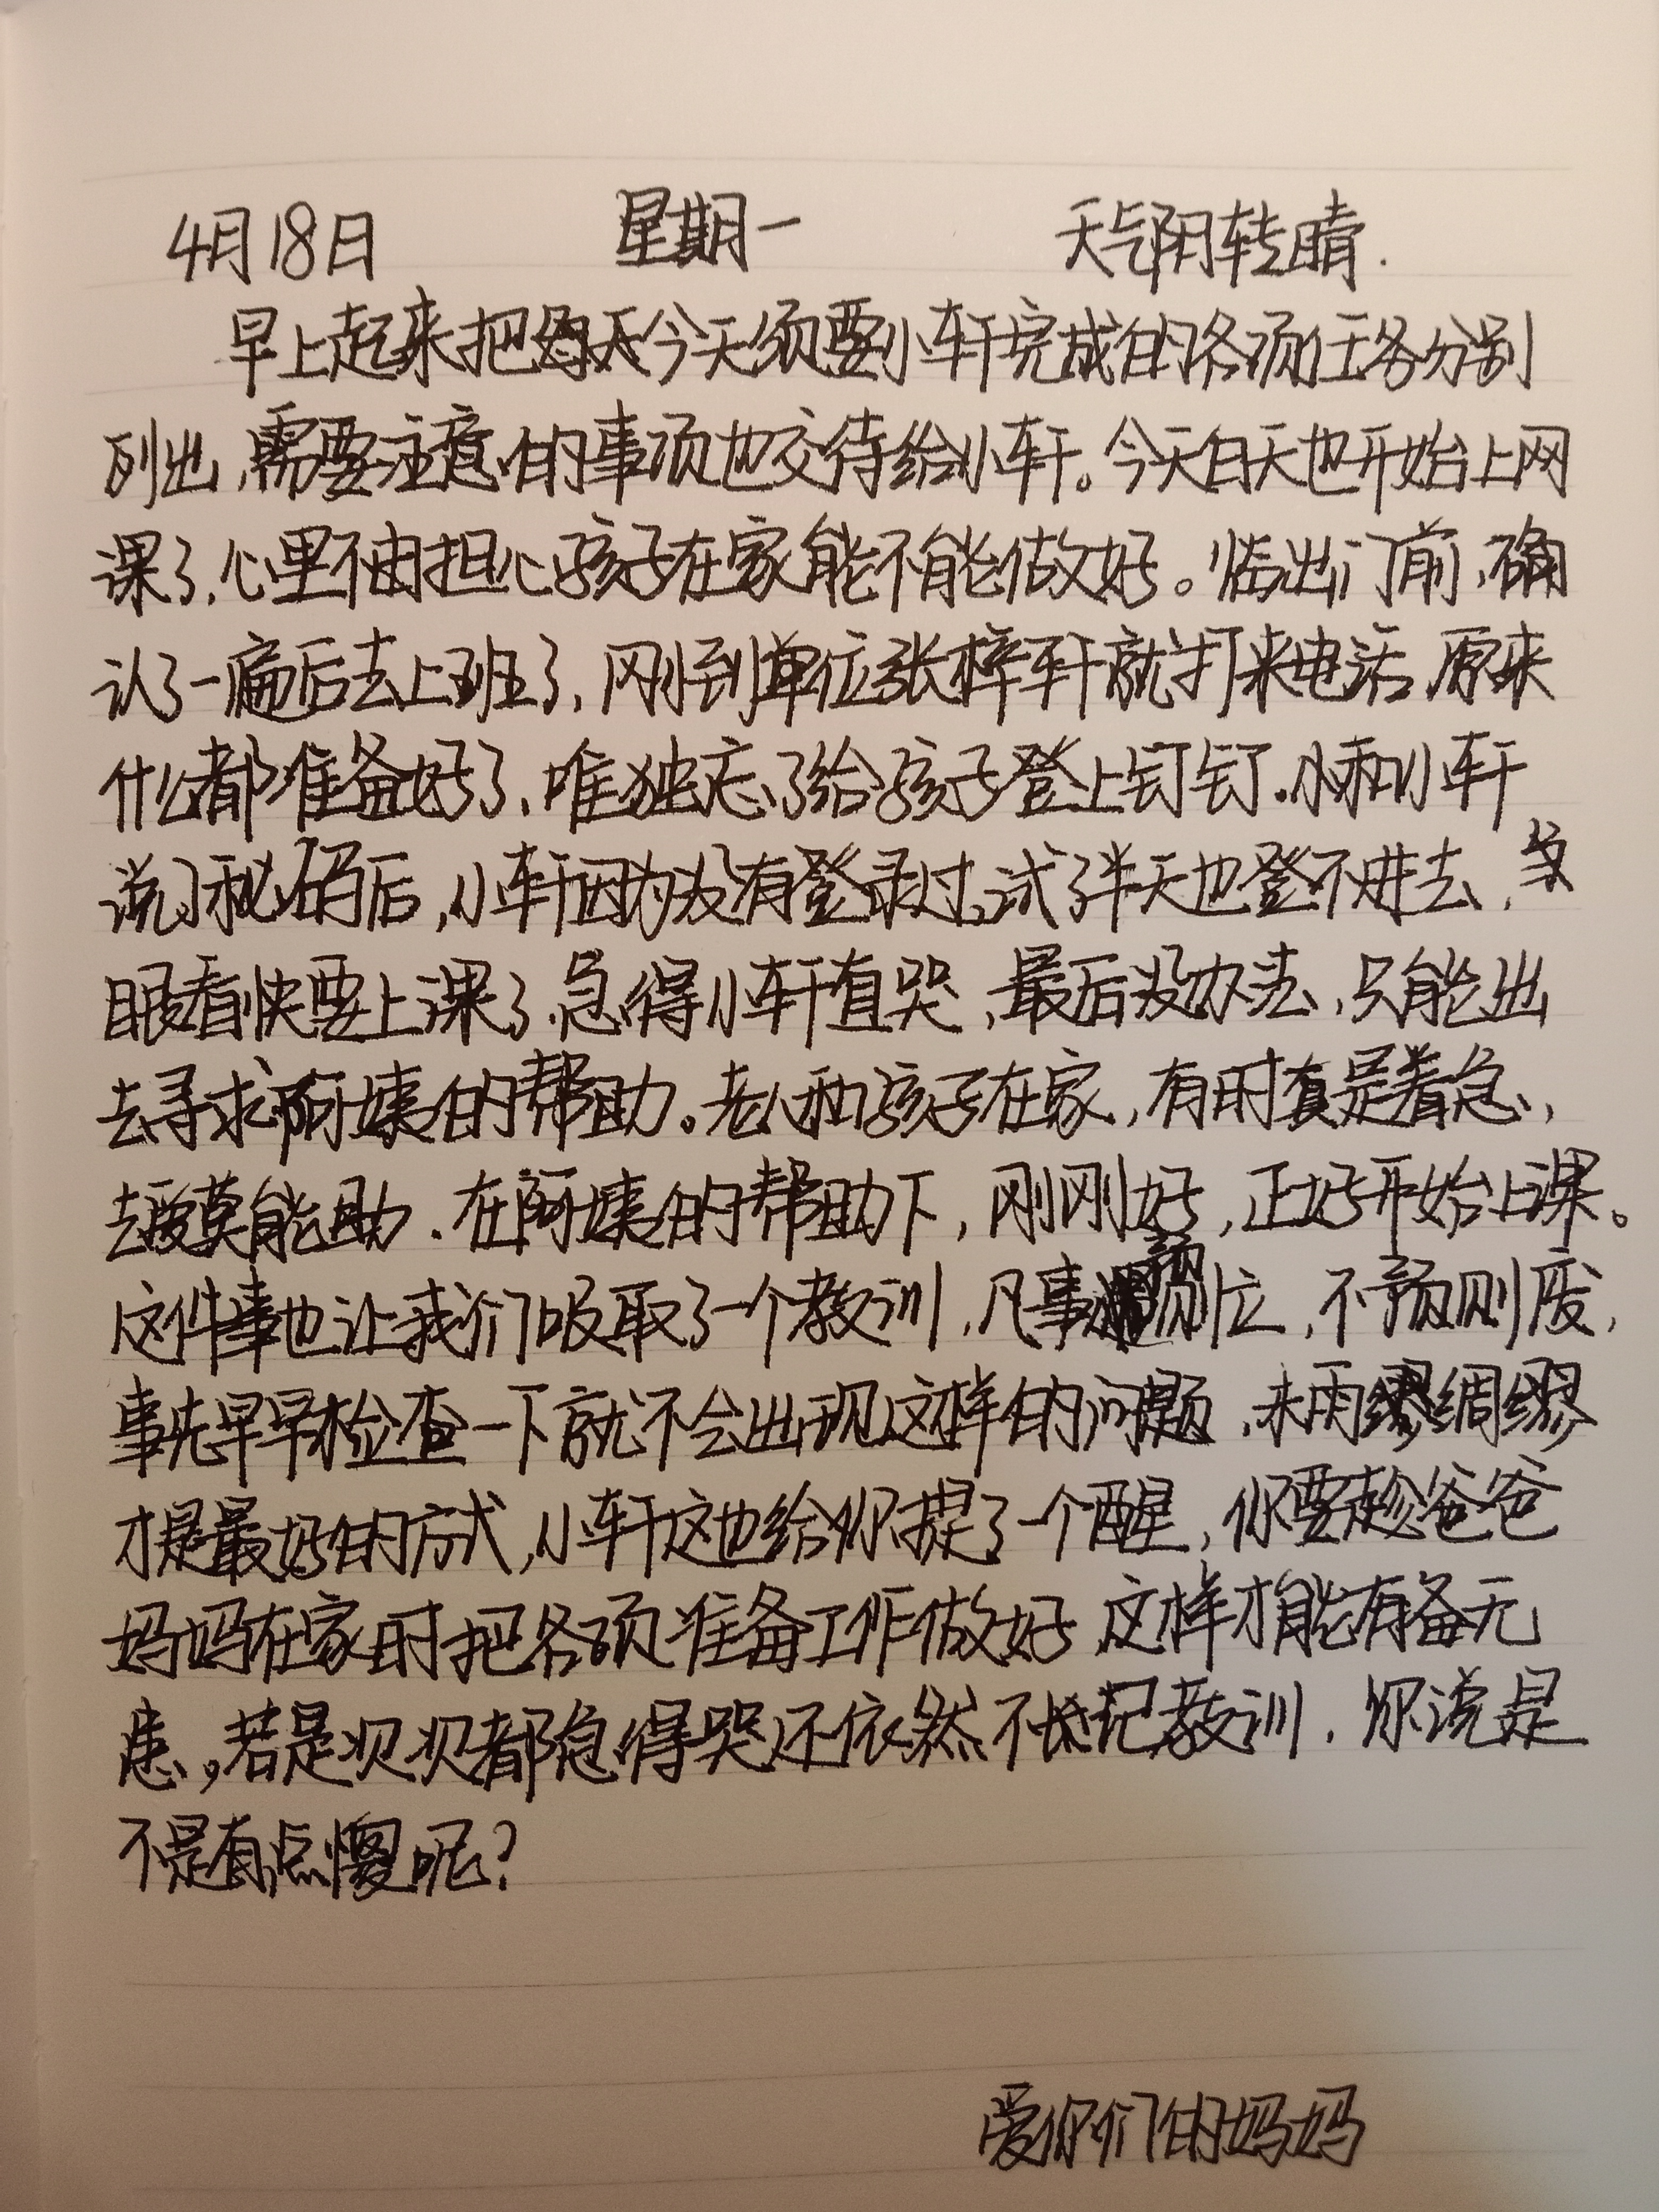 4月18日 星期一 天气阴转晴.
早上起来把每天今天须要小轩完成的各项任务分别
列出,需要注意的事项也交待给小轩。今天白天也开始上网
课了,心里不由担心孩子在家能不能做好。临出门前,确
认了一遍后去上班了,刚到单位张梓轩就打来电话,原来
什么都准备好了,唯独忘了给孩子登上钉钉.和小轩
说了秘码后,小轩因为没有登录过,试了半天也登不进去,
眼看快要上课了,急得小轩直哭,最后没办法,只能出
去寻求阿姨的帮助。老人和孩子在家,有时真是着急,
莫能助.在阿姨的帮助下,刚刚好,正好开始上课。
这件事也让我们吸取了一个教训,凡事预则立,不预则废,
事先早早检查一下就不会出现这样的问题,未雨绸缪
才是最好的方式,小轩这也给你提了一个醒,你要趁爸爸
妈妈在家时把各项准备工作做好 这样才能有备无
患,若是次次都急得哭还依然不长记教训.你说是
不是有点傻呢?
爱你们的妈妈